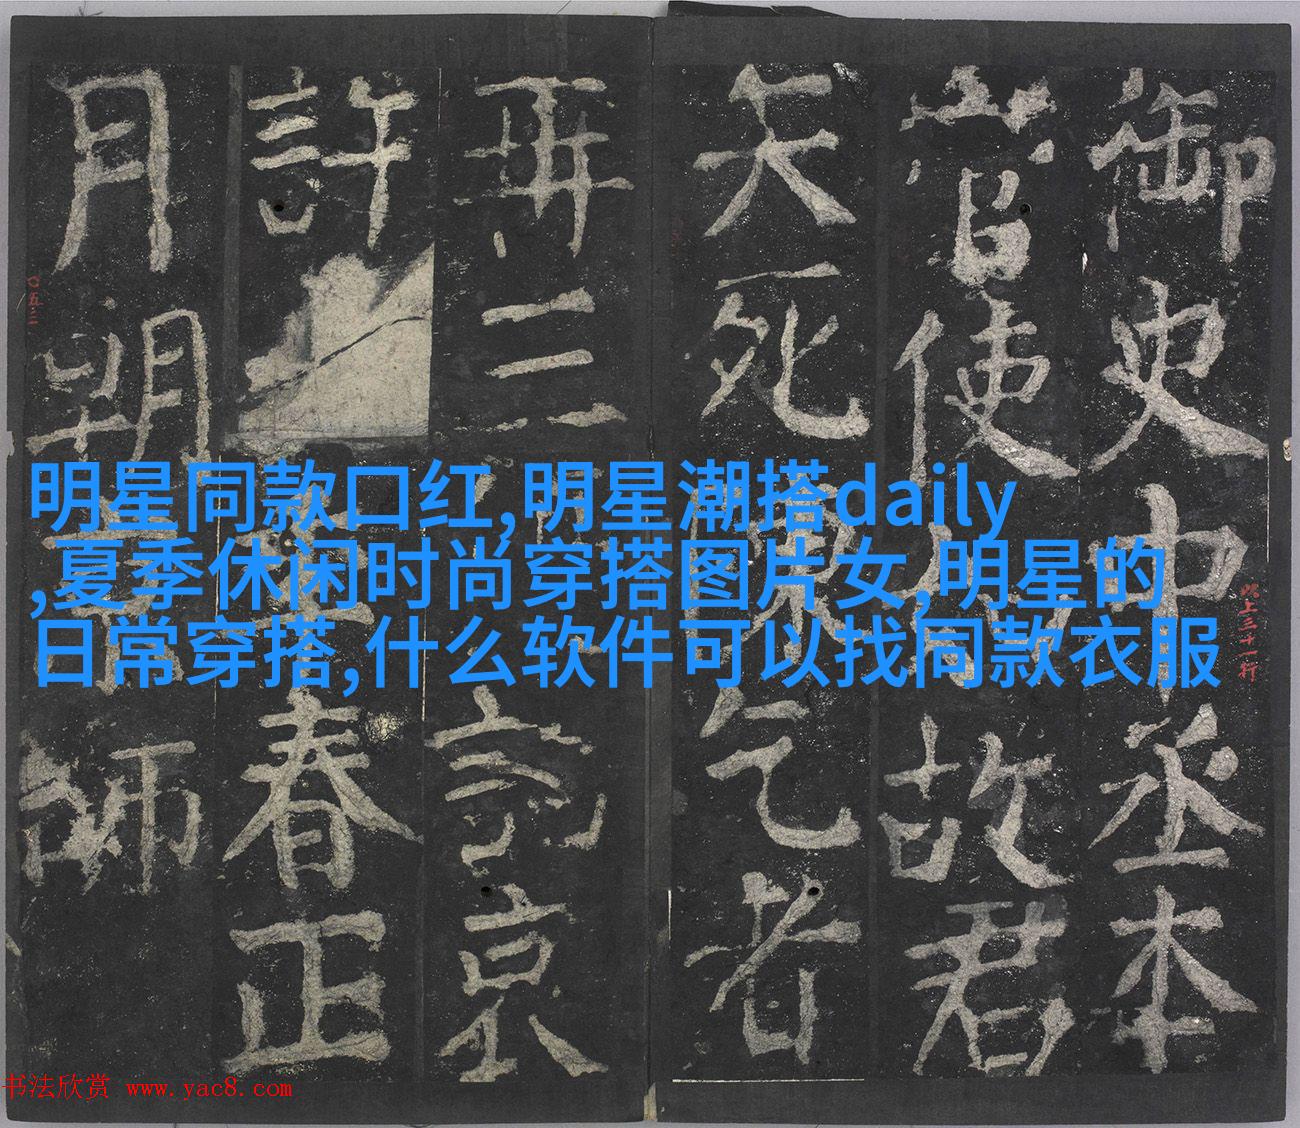 御史中丞本
當使
故君
天死
乞者
再三
京
許
春正
月朔
師
明星同款口红,明星潮搭daily
,夏季休闲时尚穿搭图片女,明星的
日常穿搭,什么软件可以找同款衣服
以上三十一行
〇五三
书法欣赏 www.yac8.com